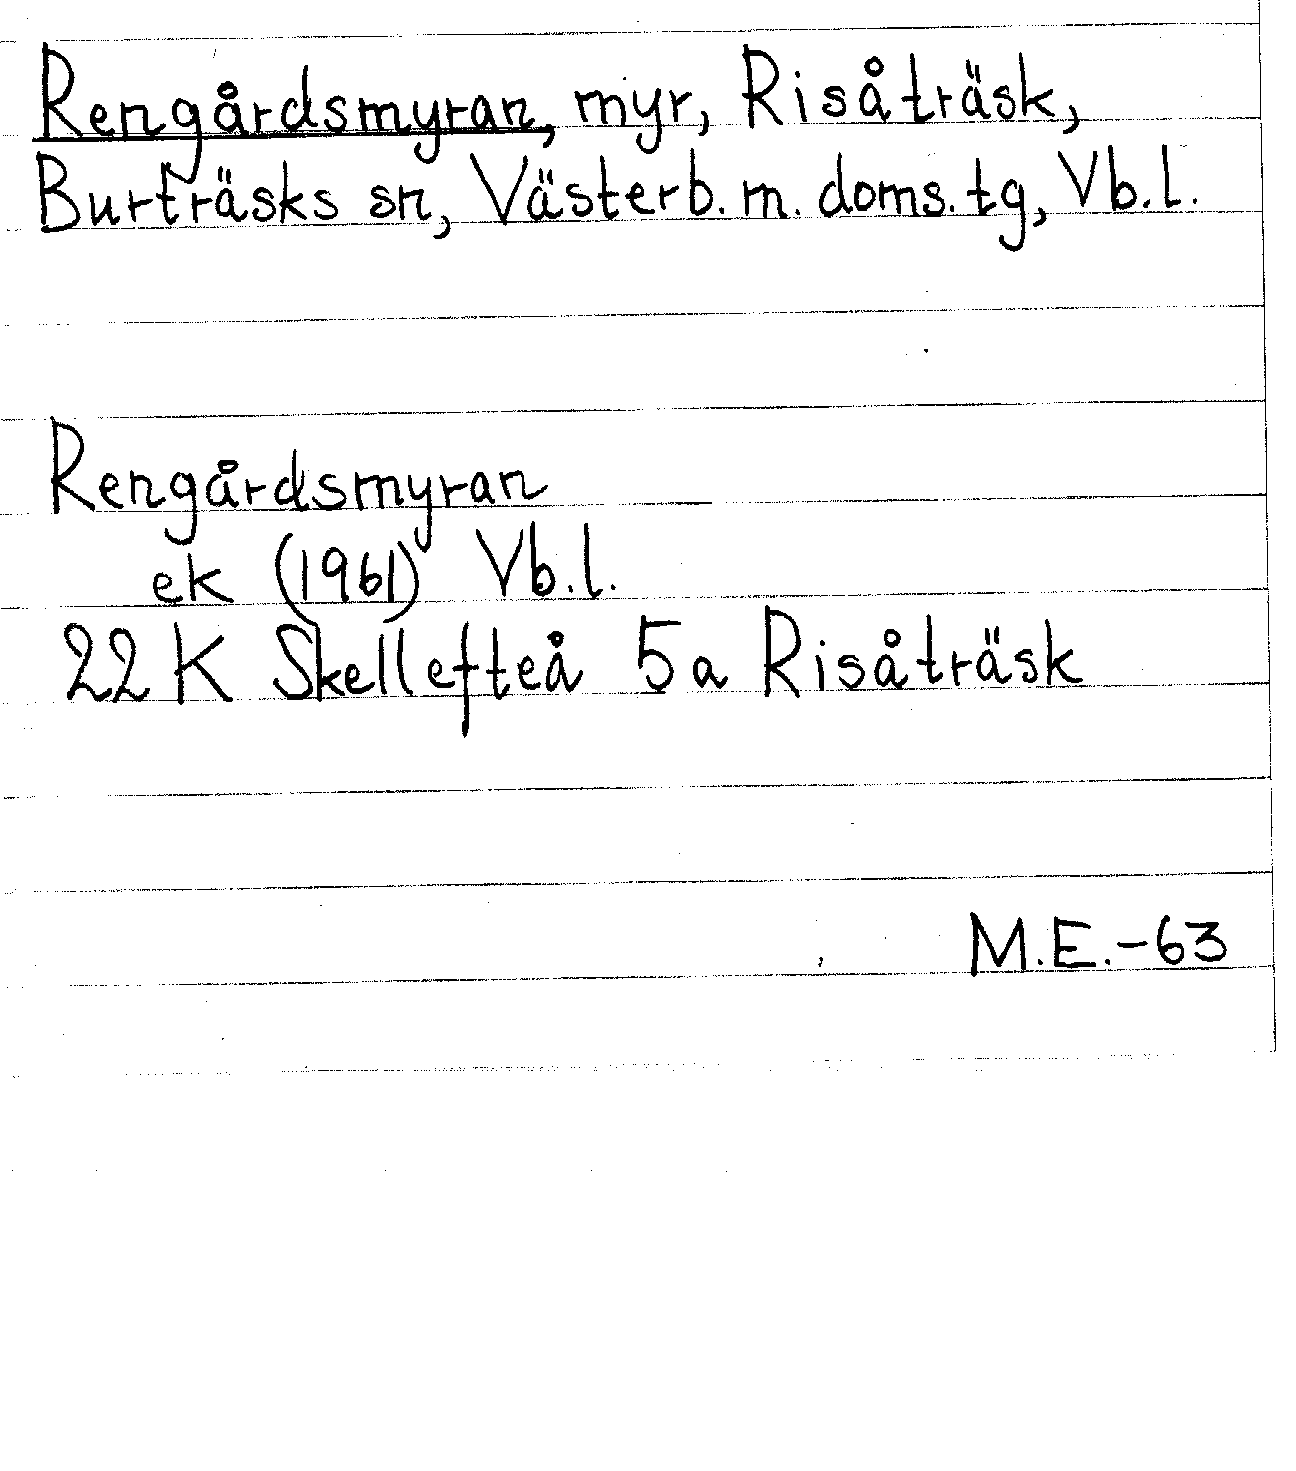 Rengårdsmyran, myr, Risåträsk,
Burträsks sn, Västerb. m. doms. tg, Vb. l.
Rengårdsmyran
ek (1961) Vb. l.
22 K Skellefteå 5a Risåträsk
M.E.-63